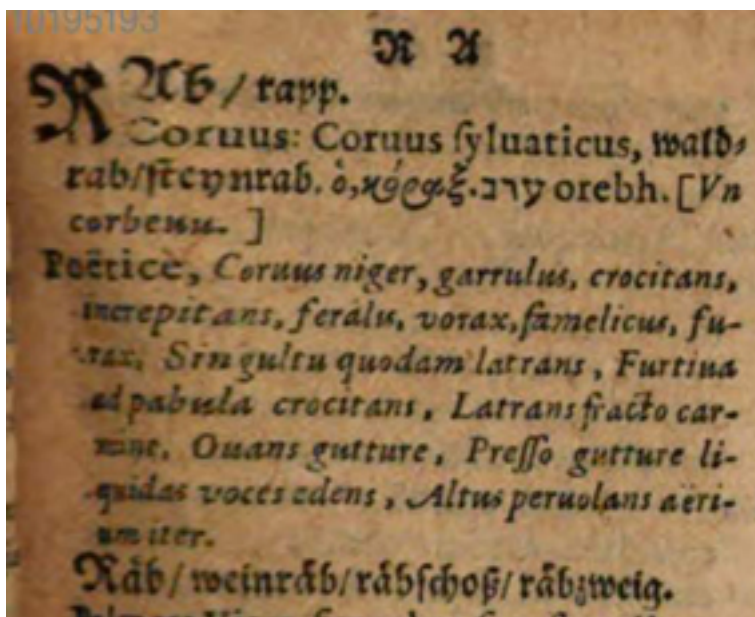 10195193
R A
RAb / rapp.
Coruus: Coruus ſyluaticus, wald⸗
rab/ſteynrab. ὁ, κόραξ. ערב orebh. [Vn
corbeau. ]
Poëtice, Coruus niger, garrulus, crocitans,
increpitans, feralis, vorax, famelicus, fu-
rax, Singultu quodam latrans, Furtiua
ad pabula crocitans, Latrans fracto car-
mine, Ouans gutture, Preſſo gutture li-
quidas voces edens, Altus peruolans aëri-
um iter.
Råb / weinråb/ råbſchoß/ råbzweig.